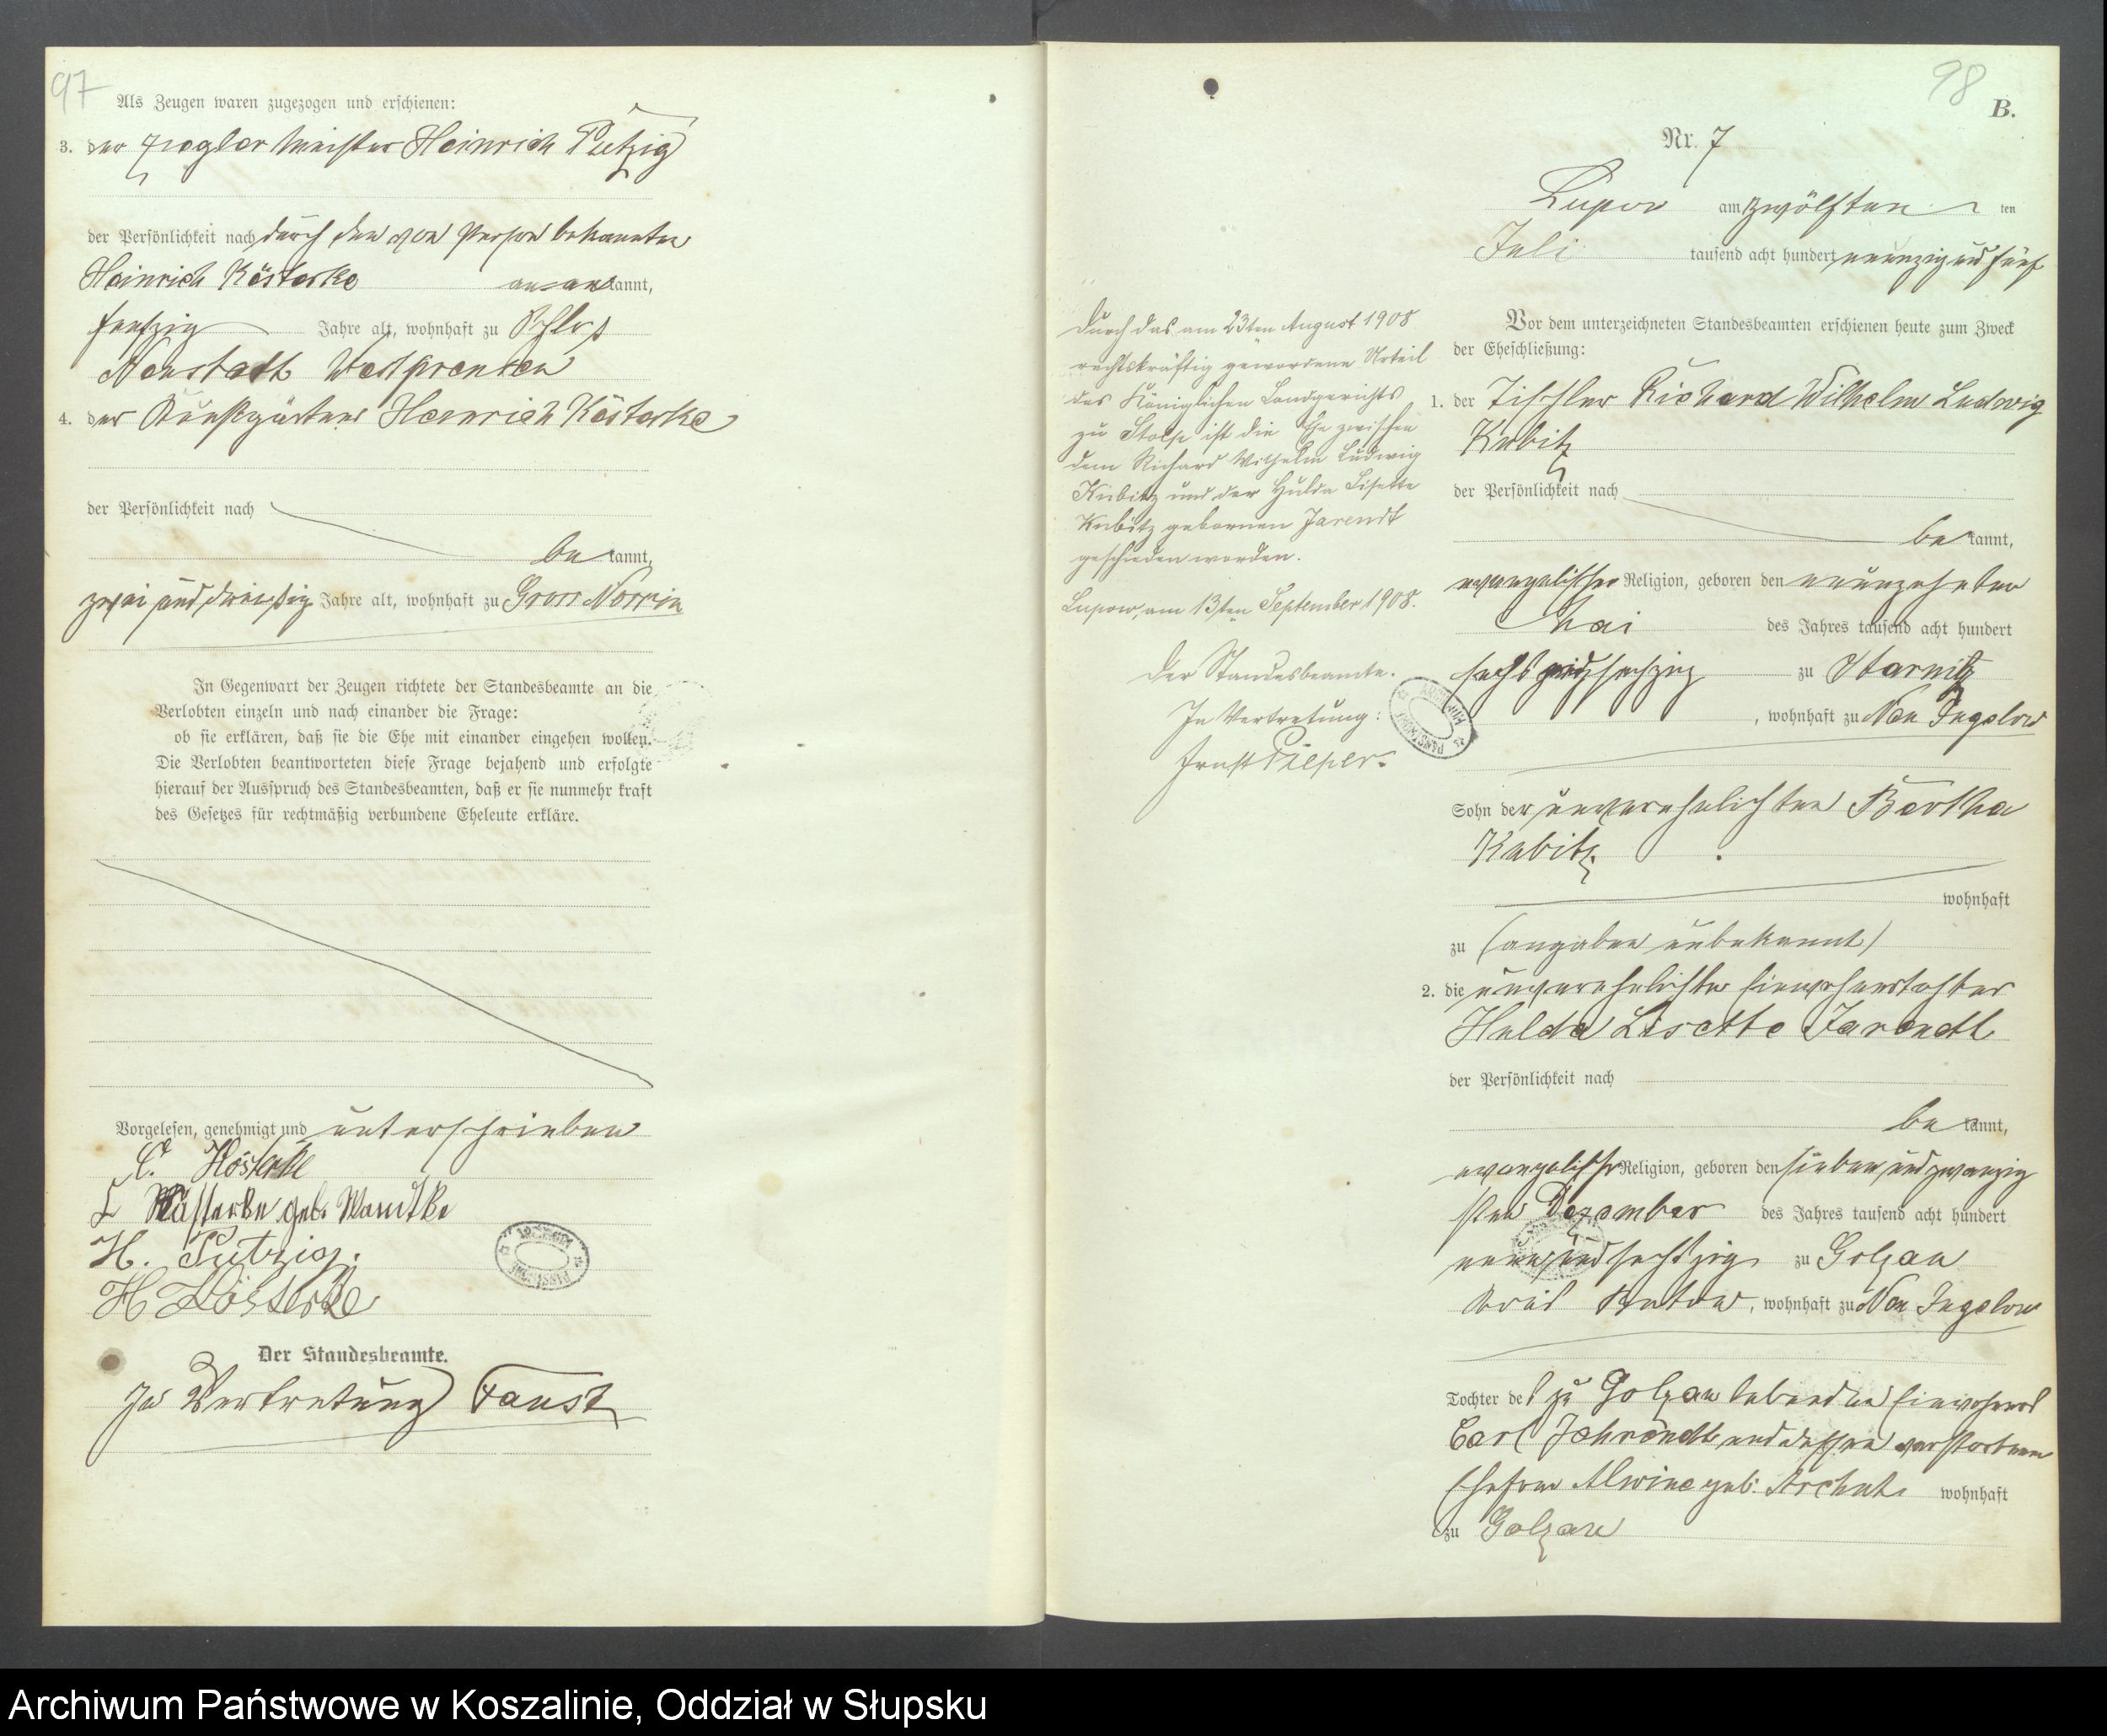 97
Als Zeugen waren zugezogen und erschienen:
3. der Ziegler Meister Heinrich Putzig
der Persönlichkeit nach durch den von Person bekannten
Heinrich Kösterke anerkannt,
fünfzig Jahre alt, wohnhaft zu Schloß
Neustadt Westpreußen
4. der Kunstgärtner Heinrich Kösterke
der Persönlichkeit nach
bekannt,
zwei und dreißig Jahre alt, wohnhaft zu Gross Nossin
In Gegenwart der Zeugen richtete der Standesbeamte an die
Verlobten einzeln und nach einander die Frage:
ob sie erklären, daß sie die Ehe mit einander eingehen wollen.
Die Verlobten beantworteten diese Frage bejahend und erfolgte
hierauf der Ausspruch des Standesbeamten, daß er sie nunmehr kraft
des Gesetzes für rechtmäßig verbundene Eheleute erkläre.
Vorgelesen, genehmigt und unterschrieben
C. Kösterke
Kösterke geb. Wandtke
H. Putzig.
H Kösterke
Der Standesbeamte.
In Vertretung Faust
98
B.
Nr. 7
Lupow am zwölften ten
Juli tausend acht hundert neunzig und fünf
Vor dem unterzeichneten Standesbeamten erschienen heute zum Zweck
der Eheschließung:
1. der Tischler Richard Wilhelm Ludwig
Kubitz
der Persönlichkeit nach
bekannt,
evangelischer Religion, geboren den neunzehnten
Mai des Jahres tausend acht hundert
sechs und sechzig zu Starnitz
, wohnhaft zu Neu Jugelow
Sohn der unverehelichten Bertha
Kubitz
wohnhaft
zu (angaben unbekannt)
2. die unverehelichte Einwohnertochter
Hulda Lisette Jarendt
der Persönlichkeit nach
bekannt,
evangelischer Religion, geboren den sieben und zwanzig
sten Dezember des Jahres tausend acht hundert
neun und sechzig zu Golzau
Kreis Bütow, wohnhaft zu Neu Jugelow
Tochter des zu Golzau lebenden Einwohners
Carl Jahrendt und dessen verstorbenen
Ehefrau Alwine geb. wohnhaft
zu Golzau
Durch das am 23ten August 1908
rechtskräftig gewordene Urteil
des Königlichen Landgerichts
zu Stolp ist die Ehe zwischen
dem Richard Wilhelm Ludwig
Kubitz und der Hulda Lisette
Kubitz gebornen Jarendt
geschieden worden.
Lupow, am 13ten September 1908.
Der Standesbeamte.
In Vertretung:
Ernst Pieper.
Archiwum Państwowe w Koszalinie, Oddział w Słupsku